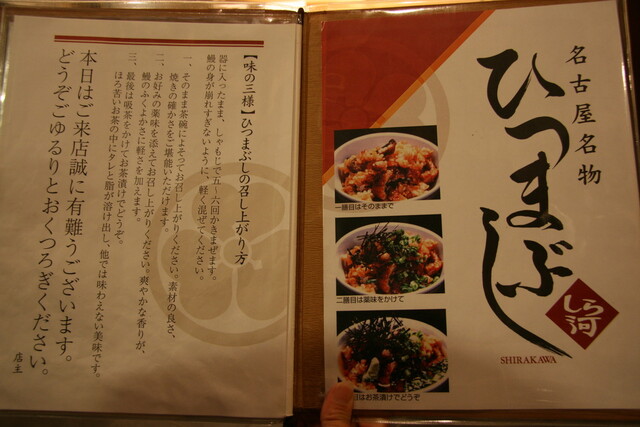 名古屋名物
ひつまぶし
しら河
SHIRAKAWA
一膳目はそのままで
二膳目は薬味をかけて
目はお茶漬けでどうぞ
【味の三様】ひつまぶしの召し上がり方
器に入ったまま、しゃもじで五〜六回かきまぜます。
鰻の身が崩れすぎないように、軽く混ぜてください。
一、そのまま茶碗によそってお召し上がりください。素材の良さ、
焼きの確かさをご堪能いただけます。
二、お好みの薬味を添えてお召し上がりください。爽やかな香りが、
鰻のふくよかさに軽さを加えます。
三、最後は吸茶をかけてお茶漬けでどうぞ。
ほろ苦いお茶の中にタレと脂が溶け出し、他では味わえない美味です。
本日はご来店誠に有難うございます。
どうぞごゆるりとおくつろぎください。
店主